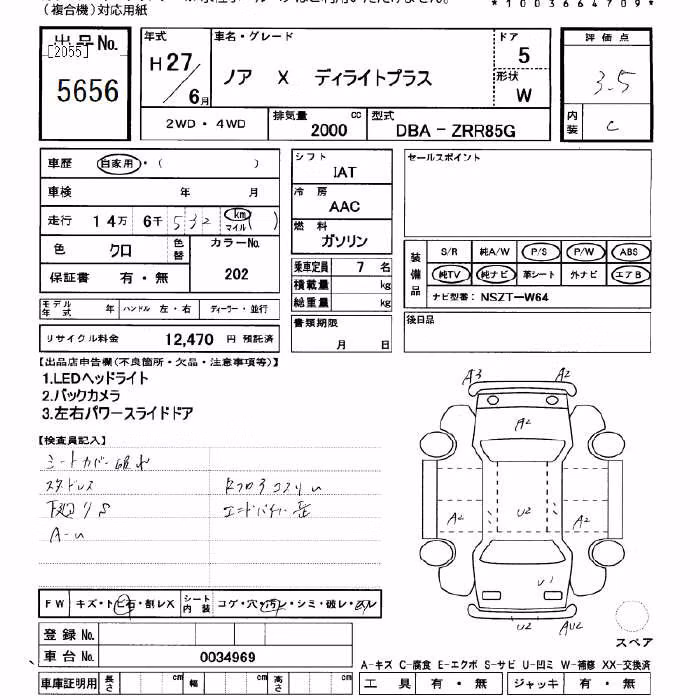 (複合機)対応用紙
*1003664709*
出品No.
[2055]
5656
年式
H27/6月
車名・グレード
ノア X ディライトプラス
ドア
5
形状
W
2WD・4WD
排気量
2000
cc
型式
DBA-ZRR85G
評価点
3.5
内装
C
車歴
自家用・( )
車検 年 月
走行 14万 6千 532 km マイル ( )
色 クロ
色替
カラーNo.
202
保証書 有・無
モデル年式 年
ハンドル 左・右
ディーラー・並行
リサイクル料金 12,470 円 預託済
シフト
IAT
冷房
AAC
燃料
ガソリン
乗車定員 7 名
積載量 kg
総重量 kg
書類期限
月 日
セールスポイント
装備品
S/R 純A/W P/S P/W ABS
純TV 純ナビ 革シート 外ナビ エアB
ナビ型番: NSZT-W64
後日品
【出品店申告欄(不良箇所・欠品・注意事項等)】
1.LEDヘッドライト
2.バックカメラ
3.左右パワースライドドア
【検査員記入】
シートカバー
スタッドレス
下廻りS
A-U
A3
A2
A2
A2
U2
A2
U1
U2
AU2
スペア
FW キズ・トビ石・割レX
シート内装
コゲ・穴・汚レ・シミ・破レ・
登録No.
車台No. 0034969
車庫証明用 長さ cm 幅 cm 高さ cm
A-キズ C-腐食 E-エクボ S-サビ U-凹ミ W-補修 XX-交換済
工具 有・無 ジャッキ 有・無